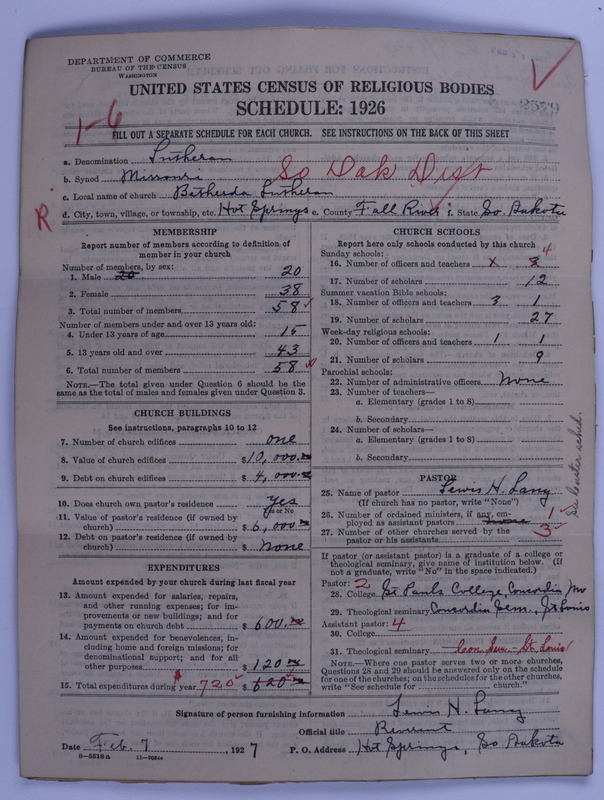 DEPARTMENT OF COMMERCE
BUREAU OF THE CENSUS
WASHINGTON
UNITED STATES CENSUS OF RELIGIOUS BODIES
SCHEDULE: 1926
2579
1-6
FILL OUT A SEPARATE SCHEDULE FOR EACH CHURCH. SEE INSTRUCTIONS ON THE BACK OF THIS SHEET
a. Denomination Lutheran
b. Synod Missouri So Dak Dist
c. Local name of church Bathesda Lutheran
d. City, town, village, or township, etc. Hot Springs e. County Fall River f. State So. Dakota
R
MEMBERSHIP
Report number of members according to definition of
member in your church
Number of members, by sex:
1. Male 20 20
2. Female 38
3. Total number of members 58
Number of members under and over 13 years old:
4. Under 13 years of age 15
5. 13 years old and over 43
6. Total number of members 58
NOTE.—The total given under Question 6 should be the
same as the total of males and females given under Question 3.
CHURCH BUILDINGS
See instructions, paragraphs 10 to 12
7. Number of church edifices one
8. Value of church edifices $10,000.xx
9. Debt on church edifices $4,000.xx
10. Does church own pastor's residence yes
Yes or No
11. Value of pastor's residence (if owned by
church) $6,000 xx
12. Debt on pastor's residence (if owned by
church) $ None
EXPENDITURES
Amount expended by your church during last fiscal year
13. Amount expended for salaries, repairs,
and other running expenses; for im-
provements or new buildings; and for
payments on church debt $ 600.xx
14. Amount expended for benevolences, in-
cluding home and foreign missions; for
denominational support; and for all
other purposes $ 120 xx
15. Total expenditures during year 720 $ 620 xx
CHURCH SCHOOLS
Report here only schools conducted by this church
Sunday schools:
16. Number of officers and teachers x 3 4
17. Number of scholars 12
Summer vacation Bible schools:
18. Number of officers and teachers 3 1
19. Number of scholars 27
Week-day religious schools:
20. Number of officers and teachers 1 1
21. Number of scholars 9
Parochial schools:
22. Number of administrative officers None
23. Number of teachers—
a. Elementary (grades 1 to 8)
b. Secondary
24. Number of scholars—
a. Elementary (grades 1 to 8)
b. Secondary
PASTOR
25. Name of pastor Lewis H. Lang
(If church has no pastor, write "None")
26. Number of ordained ministers, if any, em-
ployed as assistant pastors none 1
27. Number of other churches served by the
pastor or his assistants 3
If pastor (or assistant pastor) is a graduate of a college or
theological seminary, give name of institution below. (If
not a graduate, write "No" in the space indicated.)
Pastor: 2
28. College St Pauls College, Concordia, Mo
29. Theological seminary Concordia Sem., St Louis
Assistant pastor: 4
30. College
31. Theological seminary Con. Sem.- St. Louis
NOTE.—Where one pastor serves two or more churches,
Questions 28 and 29 should be answered only on the schedule
for one of the churches; on the schedules for the other churches,
write "See schedule for church."
Signature of person furnishing information Lewis H. Lang
Official title Reverent
Date Feb. 7, 1927 P. O. Address Hot Springs, So Dakota